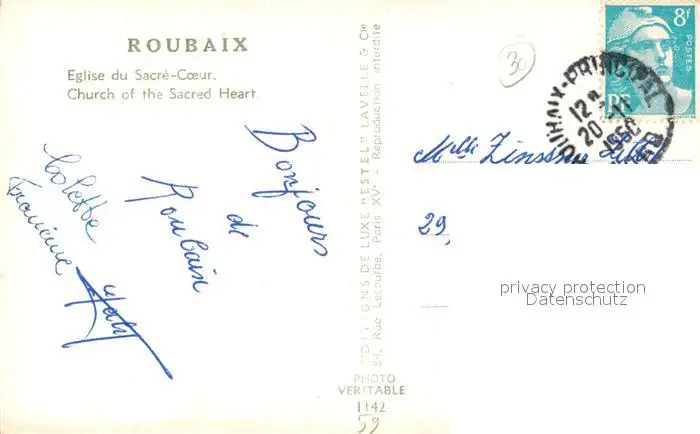 ROUBAIX
Eglise du Sacré-Cœur.
Church of the Sacred Heart
Bonjours
de
Roubaix
Colette
Francine
"EDITIONS DE LUXE "ESTEL" LAVELLE & Cie
84, Rue Lecourbe, Paris XVe - Reproduction interdite
PHOTO
VERITABLE
1142
59
30
8f
POSTES
RF
ROUBAIX-PRINCIPAL
12H
20-11
1950
Melle
29,
privacy protection
Datenschutz